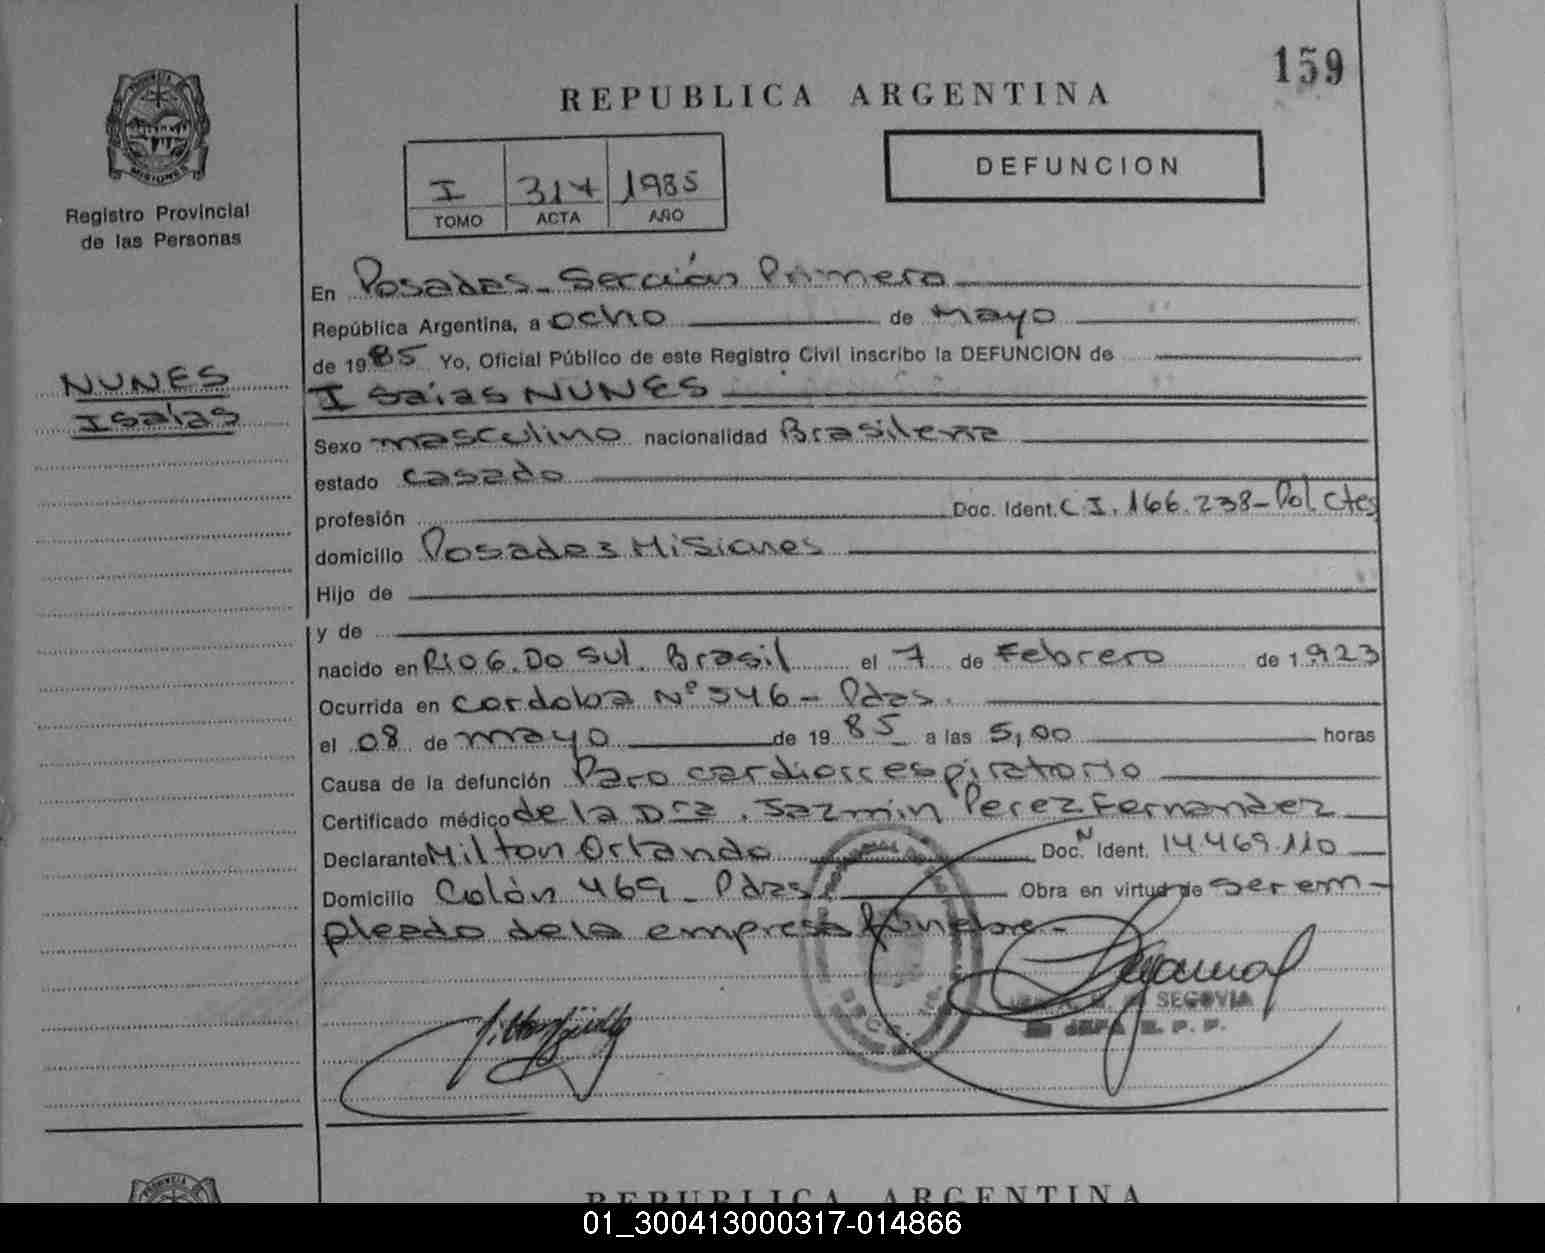 159
REPUBLICA ARGENTINA
PROVINCIA DE
MISIONES
Registro Provincial
de las Personas
DEFUNCION
I 317 1985
TOMO ACTA AÑO
En Posadas - Sección Primera
República Argentina, a ocho de mayo
de 1985 Yo, Oficial Público de este Registro Civil inscribo la DEFUNCION de
NUNES
Isaías
Isaías NUNES
Sexo masculino nacionalidad Brasilera
estado casado
profesión Doc. Ident. C.I. 166.238 - Pol. Ctes
domicilio Posadas Misiones
Hijo de
y de
nacido en Rio G. Do Sul. Brasil el 7 de Febrero de 1.923
Ocurrida en cordoba Nº 546 - Pdas.
el 08 de mayo de 1985 a las 5,00 horas
Causa de la defunción Paro cardiorrespiratorio
Certificado médico de la Dra. Jazmin Perez Fernandez
Declarante Milton Orlando Doc. N Ident. 14.469.110
Domicilio Colón 469 - Pdas. Obra en virtud de ser em-
pleado de la empresa fúnebre.-
SEGOVIA
JEFA R. P. P.
REPUBLICA ARGENTINA
01_300413000317-014866